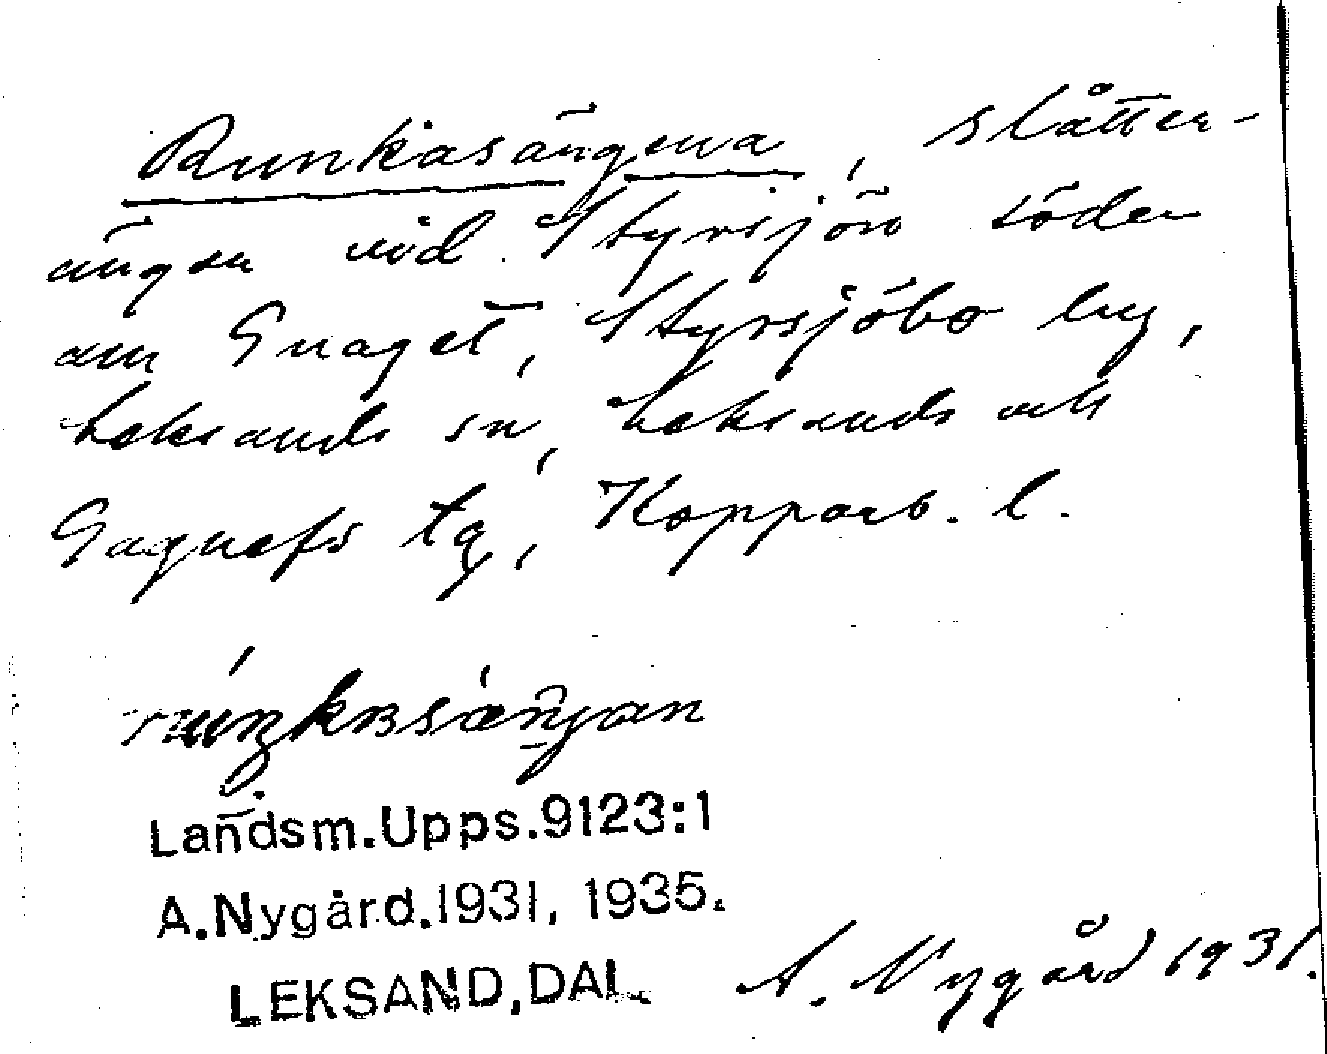 Runkasängena, slåtter-
ängar vid Styrsjön söder
om Gnaget, Styrsjöbo by,
Leksands sn, Leksands och
Gagnefs tg, Kopparb. l.
Landsm.Upps.9123:1
A.Nygård.1931, 1935.
LEKSAND, DAL.
A. Nygård 1931.